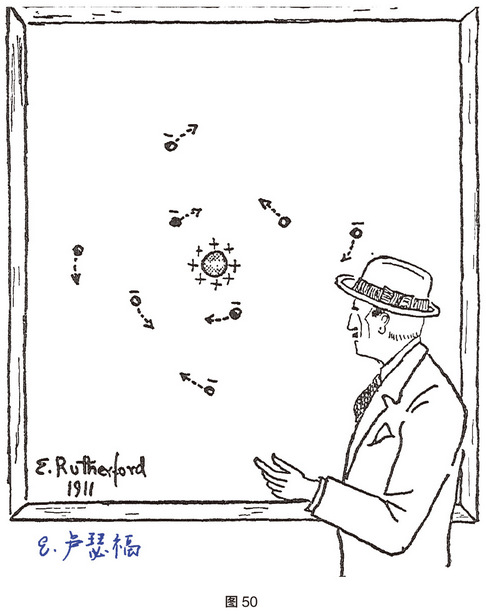 E. Rutherford
1911
E. 卢瑟福
图 50